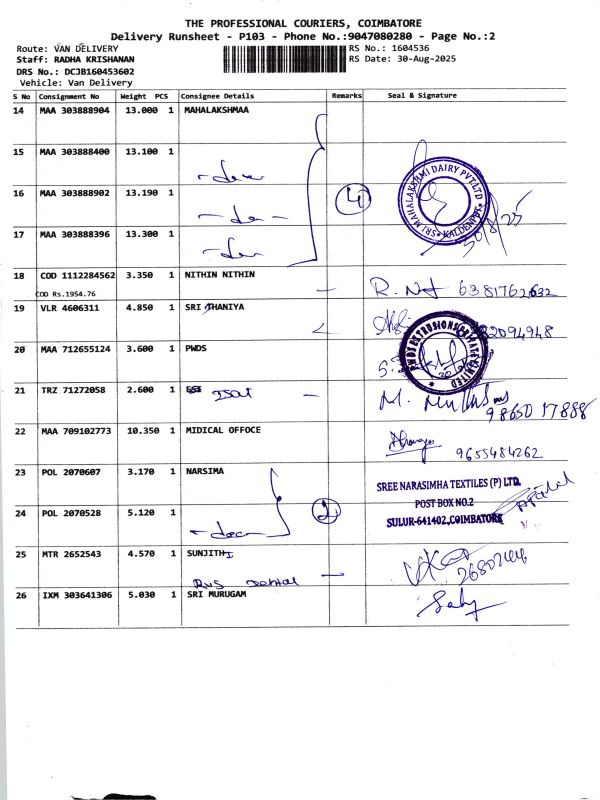 THE PROFESSIONAL COURIERS, COIMBATORE
Delivery Runsheet - P103 - Phone No.:9047080280 - Page No.:2
Route: VAN DELIVERY RS No.: 1604536
Staff: RADHA KRISHANAN RS Date: 30-Aug-2025
DRS No.: DCJB160453602
Vehicle: Van Delivery
S No Consignment No Weight PCS Consignee Details Remarks Seal & Signature
14 MAA 303888904 13.000 1 MAHALAKSHMAA
15 MAA 303888400 13.100 1
16 MAA 303888902 13.190 1 4 SRI MAHALAKSHMI DAIRY PVT LTD
17 MAA 303888396 13.300 1
18 COD 1112284562 3.350 1 NITHIN NITHIN
COD Rs.1954.76 6381762632
19 VLR 4606311 4.850 1 SRI THANIYA
20 MAA 712655124 3.600 1 PWDS
21 TRZ 71272058 2.600 1
98650 17888
22 MAA 709102773 10.350 1 MIDICAL OFFOCE
9655484262
23 POL 2070607 3.170 1 NARSIMA
SREE NARASIMHA TEXTILES (P) LTD.
POST BOX NO.2
24 POL 2070528 5.120 1 2 SULUR-641402, COIMBATORE
25 MTR 2652543 4.570 1 SUNJITHI
26 IXM 303641306 5.030 1 SRI MURUGAM